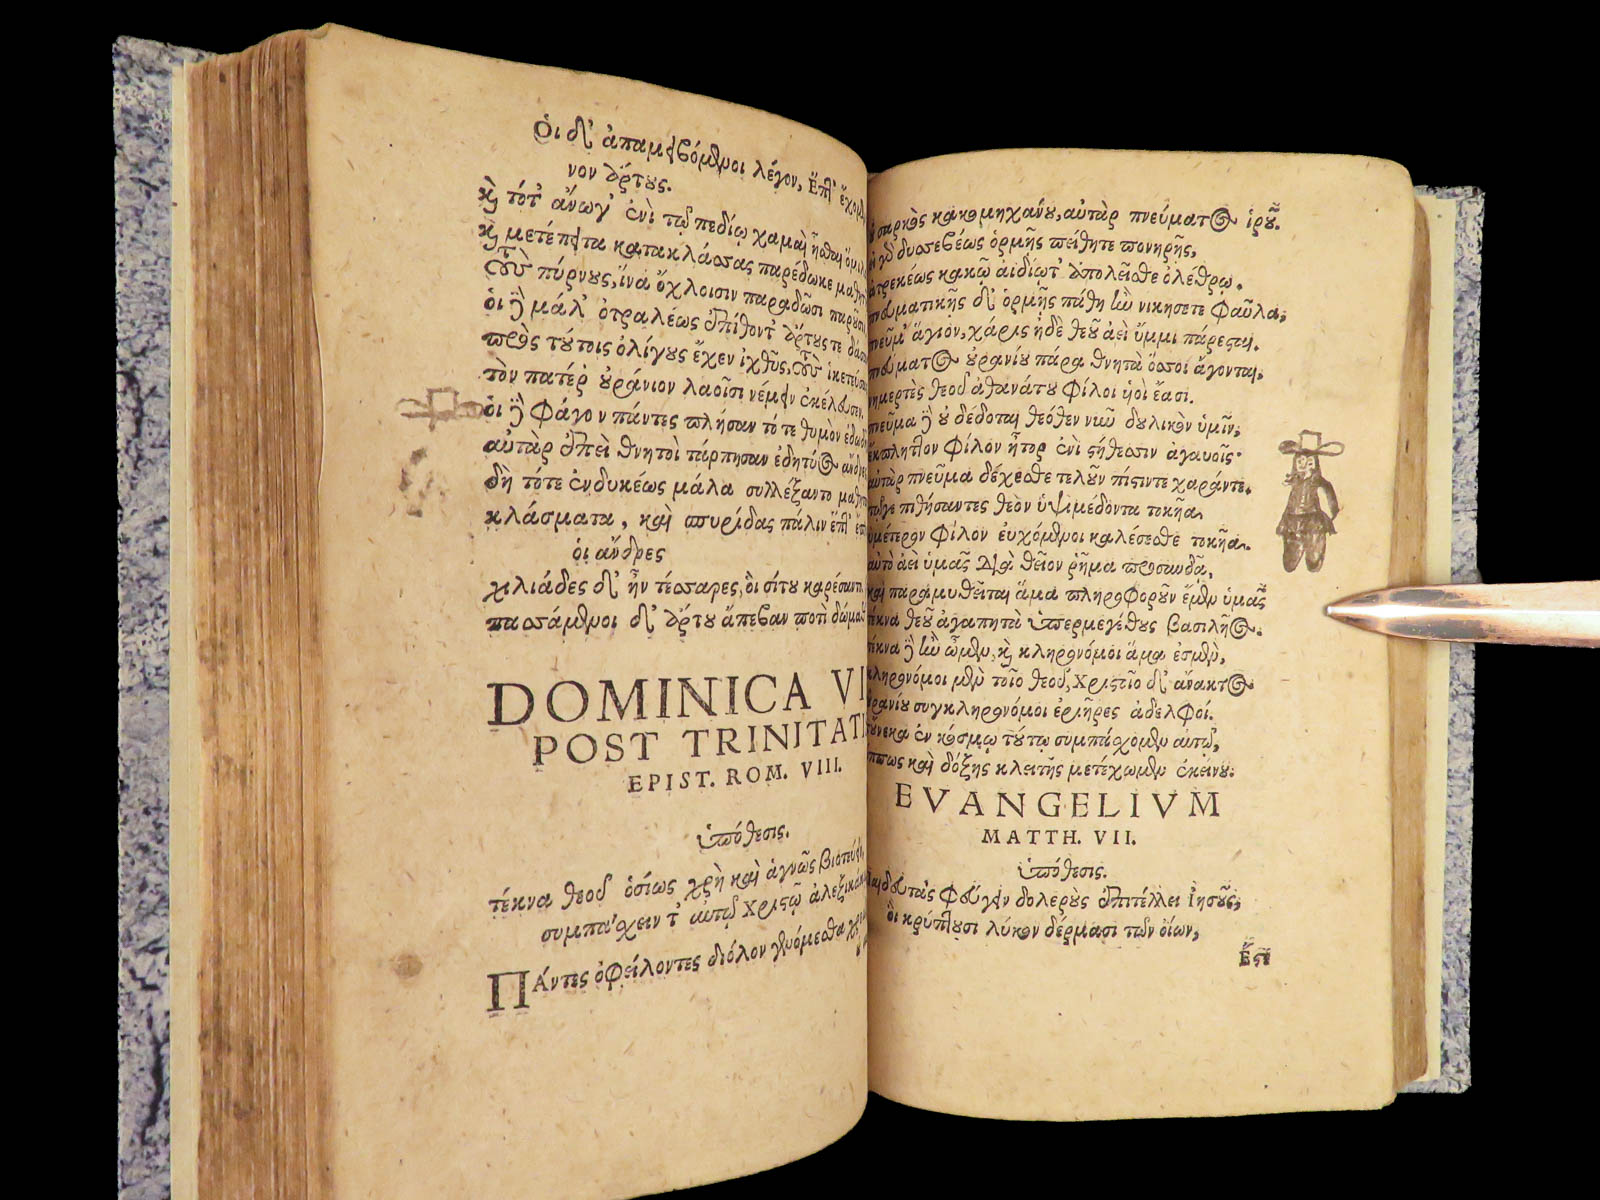 Ὁι δ' ἀπαμειβόμενοι λέγον, Ἑπτ' ἔχομεν
νον ἄρτους.
καὶ τότ' ἄνωγ' ἐνὶ τῷ πεδίῳ χαμαὶ ἧσθαι ὅμιλ
καὶ μετέπειτα κατακλάσσας παρέδωκε μαθητ
τοὺς πύρνους, ἵνα ὄχλοισιν παραδῶσι παρ
οἱ δὲ μάλ' ὀτραλέως ἐπίθοντ' ἄρτους τε
πρὸς τούτοις ὀλίγους ἔχεν ἰχθῦς, τοὺς ἱκετεύσ
τὸν πατέρ' οὐράνιον λαοῖσι νέμειν ἐκέλευσεν.
οἱ δὲ φάγον πάντες πλήσαν τό τε θυμὸν ἐδωδ
αὐτὰρ ἐπεὶ θνητοὶ τάρπησαν ἐδητύος ἄνδρες
δὴ τότε ἐνδυκέως μάλα συλλέξαντο μαθητ
κλάσματα, καὶ σπυρίδας πάλιν ἕπτ'
οἱ ἄνδρες
χιλιάδες δ' ἦν τέσσαρες, οἳ σίτου κορέσαντ
πασσάμενοι δ' ἄρτου ἀπέβαν ποτὶ δώματ
DOMINICA VI
POST TRINITATI
EPIST. ROM. VIII.
ὑπόθεσις.
τέκνα θεοῦ ὁσίως χρὴ καὶ ἁγνῶς
συμπάχειν τ' αὐτῷ χριστῷ ἀλεξικάκ
Πάντες ὀφείλοντες διόλου γενόμεσθα
σαρκὸς κακομηχάνου, αὐτὰρ πνεύματος ἱροῦ.
δυσσεβέως ὁρμῆς πείθητε πονηρῆς,
ἀτρεκέως κακῷ ἀϊδίῳ τ' ἀπολεῖσθε ὀλέθρῳ.
πνευματικῆς δ' ὁρμῆς πάθη ἢν νικήσετε φαῦλα,
πνεῦμ' ἅγιον, χάρις ἠδὲ θεοῦ ἀεὶ ὔμμι πάρεσται.
πνεύματος οὐρανίου πάρα θνητὰ ὅσσοι ἄγονται,
νημερτὲς θεοῦ ἀθανάτου φίλοι υἱοὶ ἔασι.
πνεῦμα δὲ οὐ δέδοται θεόθεν νῦν δουλικὸν ὑμῖν,
ἐκπλῆττον φίλον ἦτορ ἐνὶ στήθεσσιν ἀγαυοῖς.
αὐτὰρ πνεῦμα δέχεσθε τελοῦν πίστιν τε χαράν τε.
πιθήσαντες θεὸν ὑψιμέδοντα τοκῆα
ὑμέτερον φίλον εὐχόμενοι καλέσεσθε τοκῆα.
αὐτὸ ἀεὶ ὑμᾶς διὰ θεῖον ῥῆμα προσαυδᾷ,
καὶ παραμυθεῖται ἅμα πληροφοροῦν ἔμεν ὑμᾶς
τέκνα θεοῦ ἀγαπητὰ ὑπερμεγέθους βασιλῆος.
τέκνα δὲ ἢν ὦμεν, καὶ κληρονόμοι ἅμα ἐσμὲν,
κληρονόμοι μὲν τοῖο θεοῦ, χριστοῖο δ' ἄνακτος
οὐρανίου συγκληρονόμοι ἐρίηρες ἀδελφοί.
τοὔνεκα ἐν κόσμῳ τούτῳ συμπάχομεν αὐτῷ,
ππως καὶ δόξης κλειτῆς μετέχωμεν ἐκείνου.
EVANGELIVM
MATTH. VII.
ὑπόθεσις.
φεύγειν δολεροὺς ἐπιτέλλει Ἰησοῦς,
οἳ κρύπτουσι λύκον δέρμασι τῶν ὀΐων,
Ἔστ